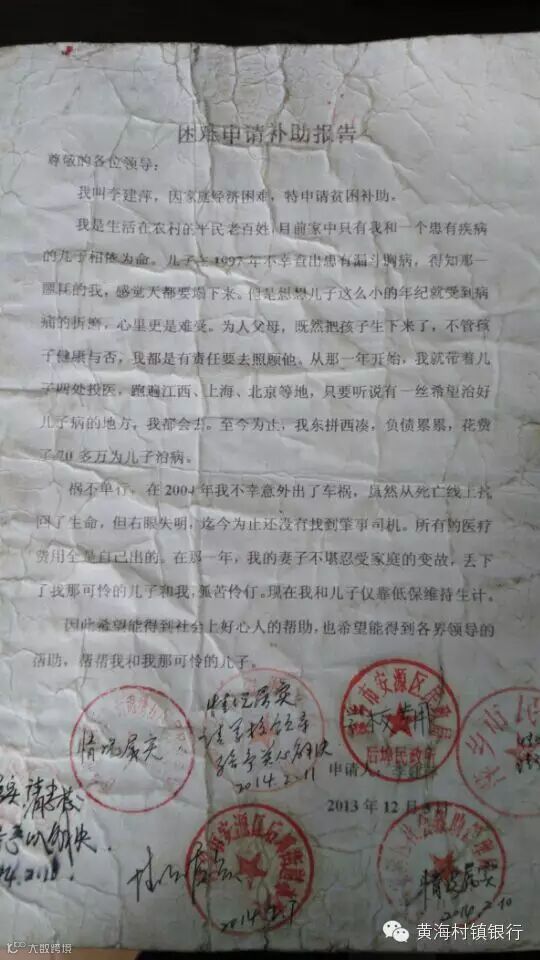 困难申请补助报告
尊敬的各位领导：
我叫李建萍，因家庭经济困难，特申请贫困补助。
我是生活在农村的平民老百姓，目前家中只有我和一个患有疾病
的儿子相依为命。儿子于1997年不幸查出患有漏斗胸病，得知那一
噩耗的我，感觉天都要塌下来。但是想想儿子这么小的年纪就受到病
痛的折磨，心里更是难受。为人父母，既然把孩子生下来了，不管孩
子健康与否，我都是有责任要去照顾他。从那一年开始，我就带着儿
子四处投医，跑遍江西、上海、北京等地，只要听说有一丝希望治好
儿子病的地方，我都会去。至今为止，我东拼西凑，负债累累，花费
了70多万为儿子治病。
祸不单行，在2004年我不幸意外出了车祸，虽然从死亡线上抢
回了生命，但右眼失明，迄今为止还没有找到肇事司机。所有的医疗
费用全是自己出的。在那一年，我的妻子不堪忍受家庭的变故，丢下
了我那可怜的儿子和我，孤苦伶仃。现在我和儿子仅靠低保维持生计。
因此希望能得到社会上好心人的帮助，也希望能得到各界领导的
帮助，帮帮我和我那可怜的儿子。
情况属实
情况属实
给予关心解决
2014.2.11
市安源区
后埠民政所
申请人：李建
2013年12月8日
予以解决
安源区后
2014.2
情况属实
2014.2.10
黄海村镇银行
大数跨境